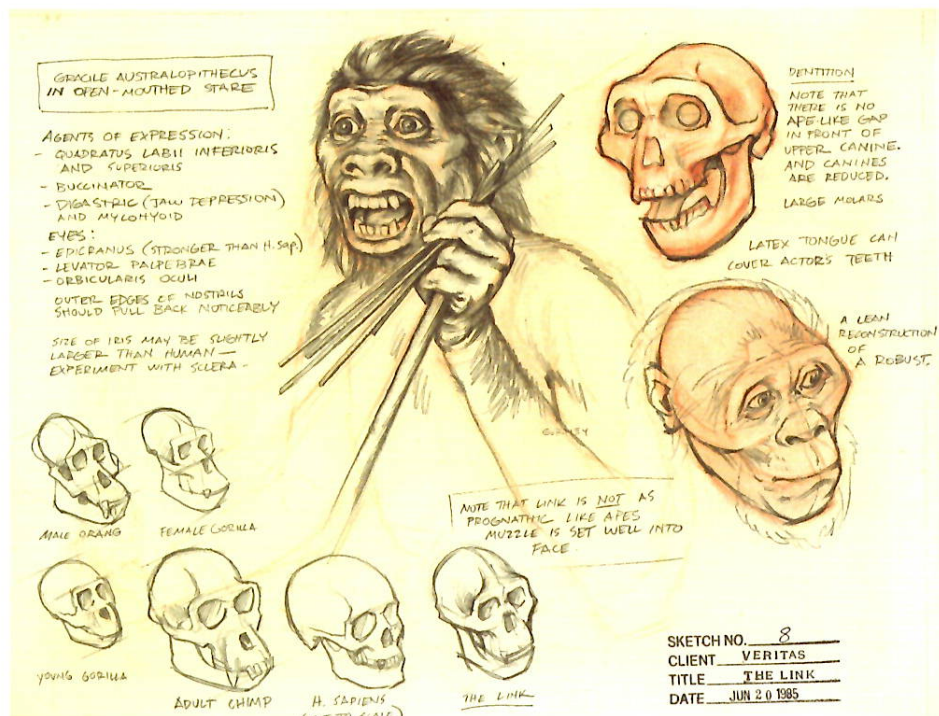 GRACILE AUSTRALOPITHECUS
IN OPEN-MOUTHED STARE
AGENTS OF EXPRESSION:
- QUADRATUS LABII INFERIORIS
AND SUPERIORIS
- BUCCINATOR
- DIGASTRIC (JAW DEPRESSION)
AND MYLOHYOID
EYES:
- EPICRANUS (STRONGER THAN H. SAP.)
- LEVATOR PALPEBRAE
- ORBICULARIS OCULI
OUTER EDGES OF NOSTRILS
SHOULD PULL BACK NOTICEABLY
SIZE OF IRIS MAY BE SLIGHTLY
LARGER THAN HUMAN —
EXPERIMENT WITH SCLERA -
DENTITION
NOTE THAT
THERE IS NO
APE-LIKE GAP
IN FRONT OF
UPPER CANINE.
AND CANINES
ARE REDUCED.
LARGE MOLARS
LATEX TONGUE CAN
COVER ACTOR'S TEETH
A LEAN
RECONSTRUCTION
OF
A ROBUST.
MALE ORANG
FEMALE GORILLA
NOTE THAT LINK IS NOT AS
PROGNATHIC LIKE APES
MUZZLE IS SET WELL INTO
FACE.
YOUNG GORILLA
ADULT CHIMP
H. SAPIENS
(NOT TO SCALE)
THE LINK
SKETCH NO. 8
CLIENT VERITAS
TITLE THE LINK
DATE JUN 20 1985